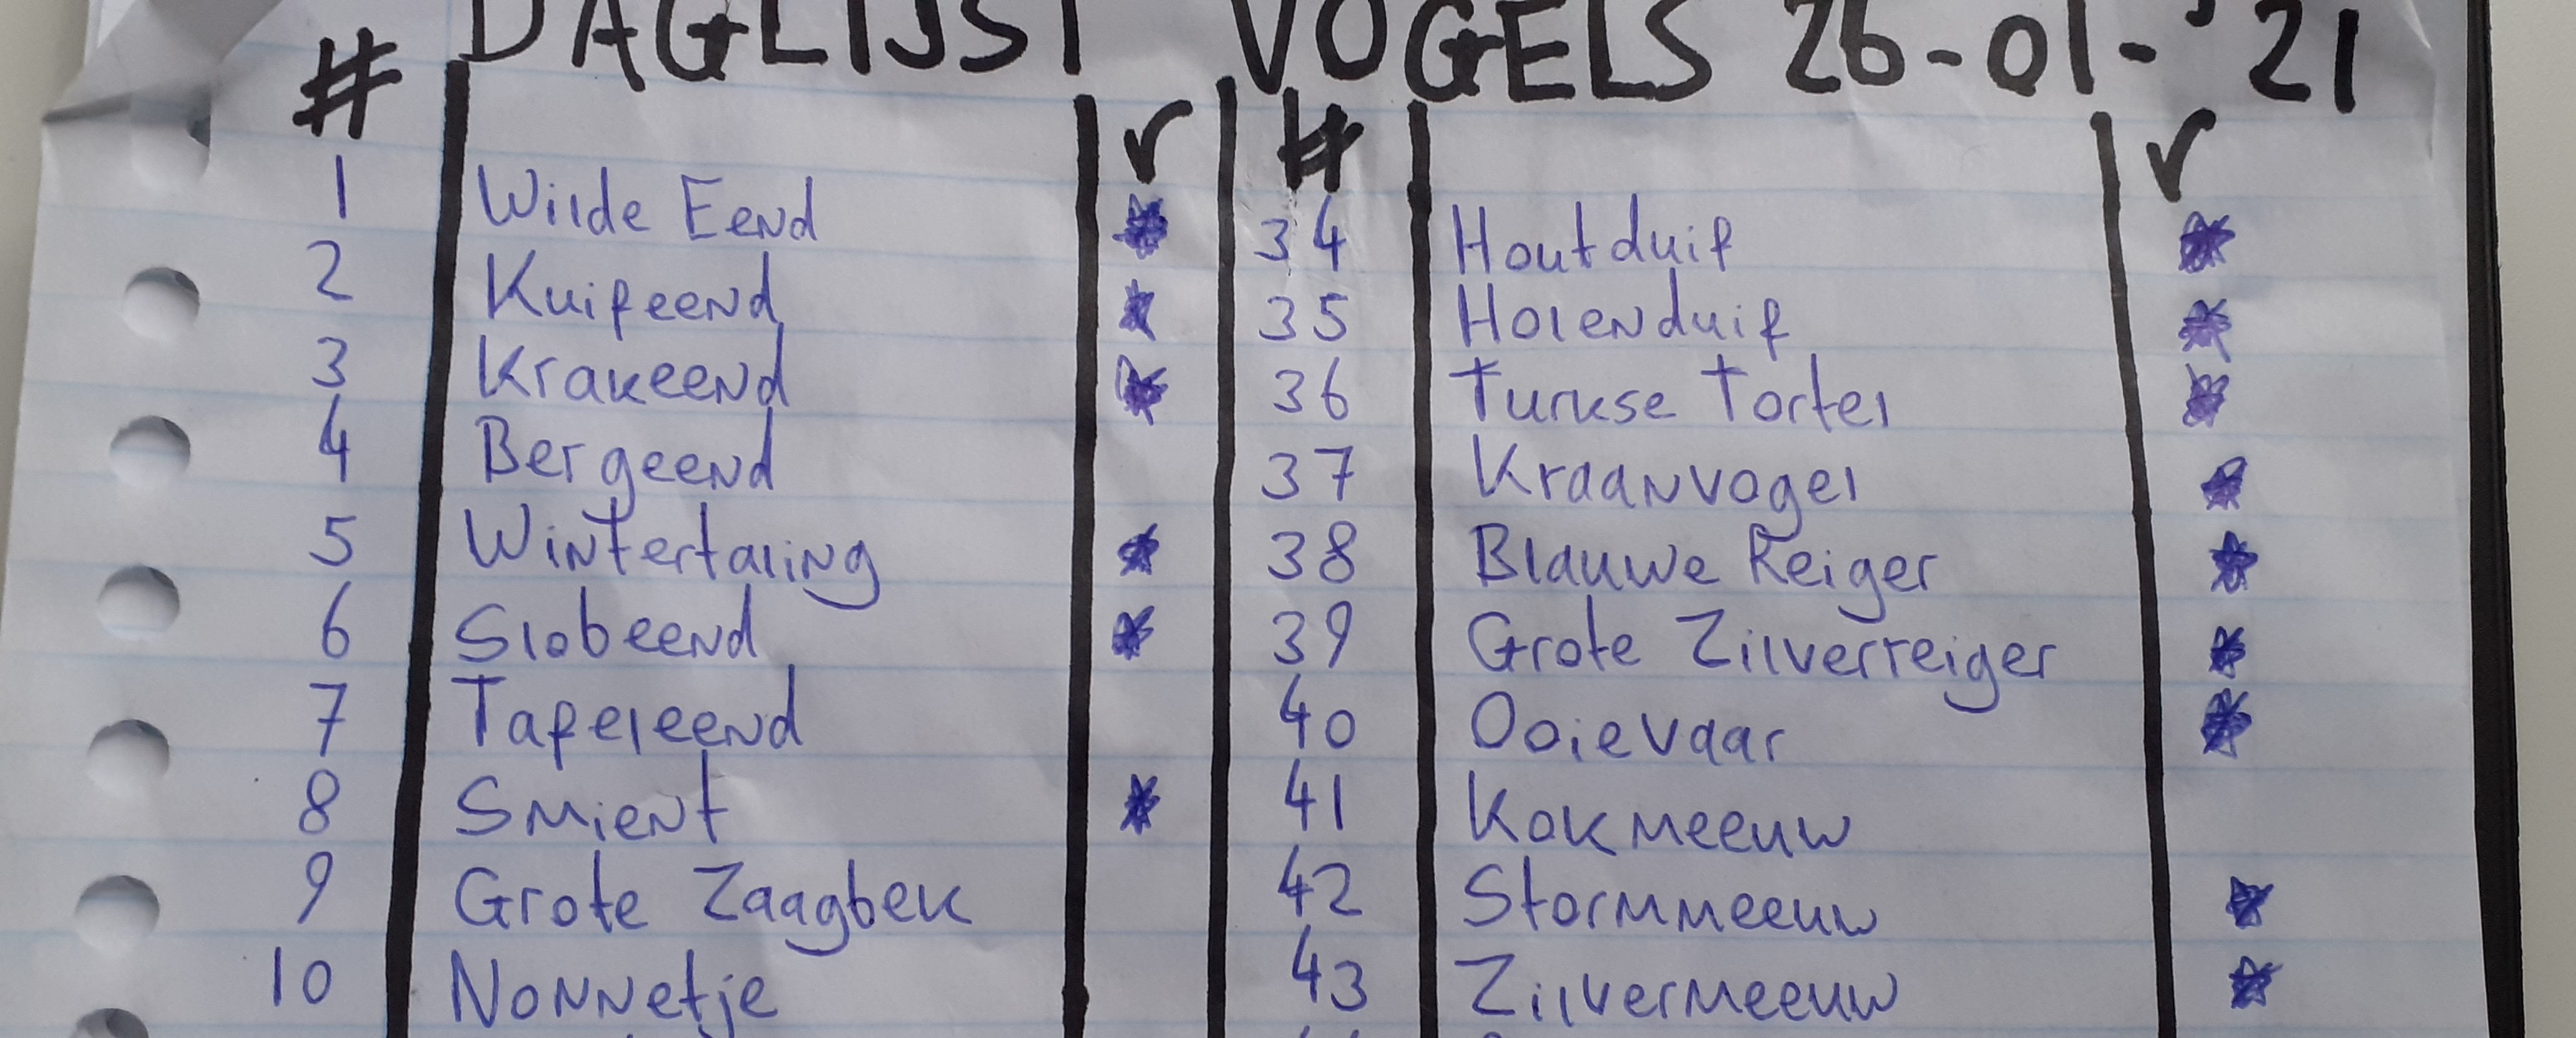 DAGLIJST VOGELS 26-01-'21
# # 
1 Wilde Eend 34 Houtduif
2 Kuifeend 35 Holenduif
3 Krakeend 36 Turkse Tortel
4 Bergeend 37 Kraanvogel
5 Wintertaling 38 Blauwe Reiger
6 Slobeend 39 Grote Zilverreiger
7 Tafeleend 40 Ooievaar
8 Smient 41 Kokmeeuw
9 Grote Zaagbek 42 Stormmeeuw
10 Nonnetje 43 Zilvermeeuw